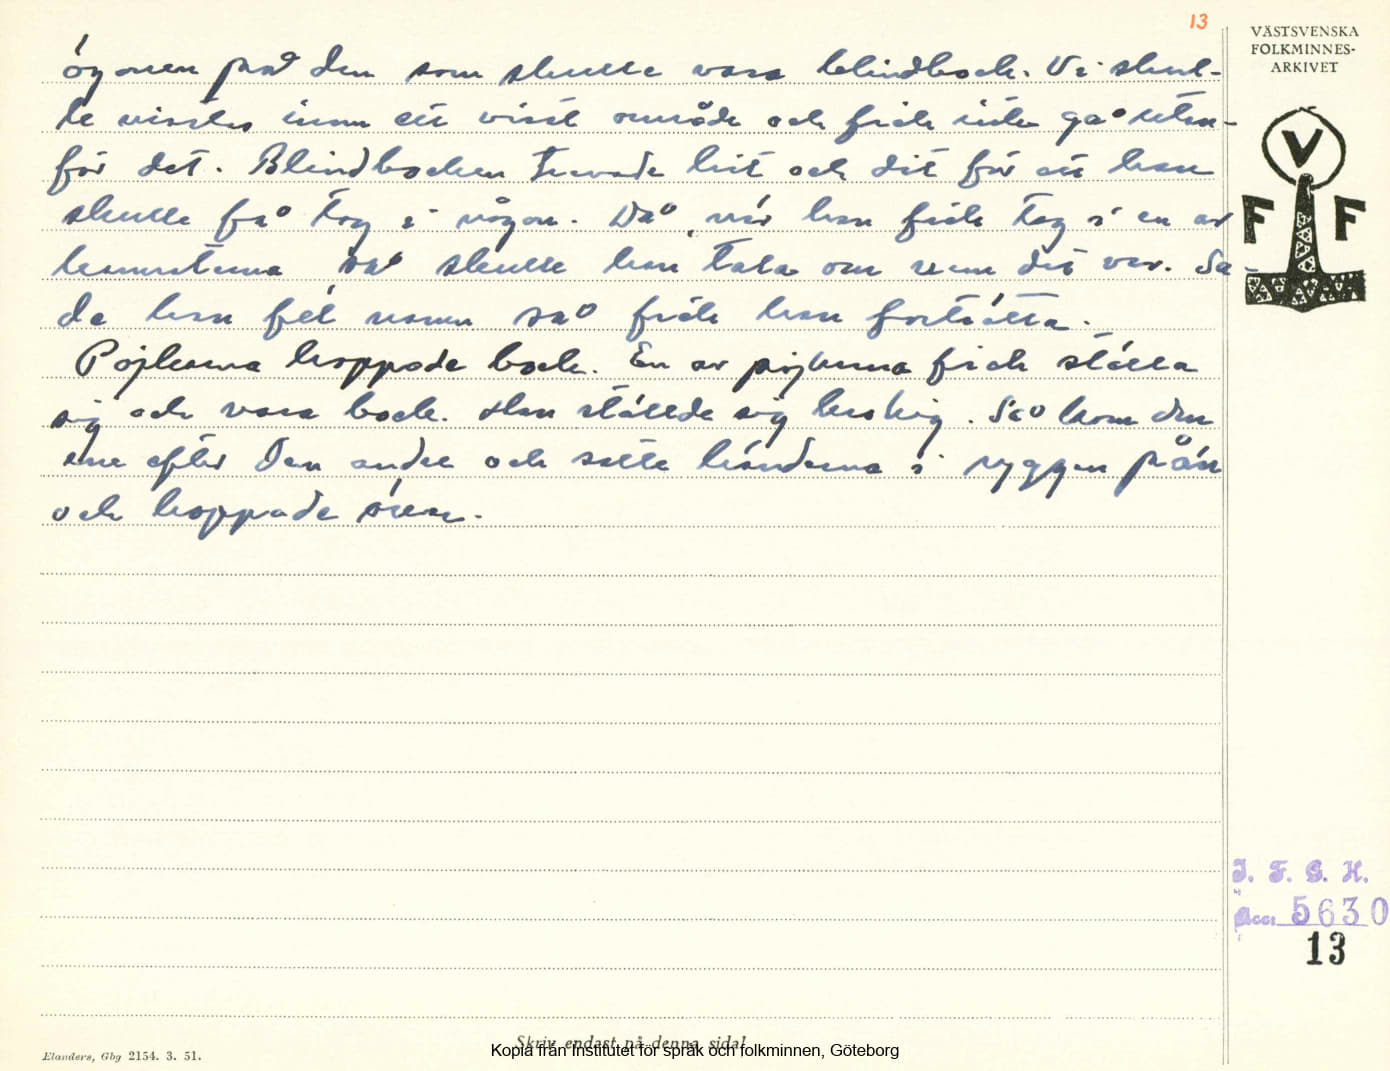 13
VÄSTSVENSKA
FOLKMINNES-
ARKIVET
V
F F
ögonen på den som skulle vara blindbock. Vi skul-
le vistas inom ett visst område och fick inte gå utan-
för det. Blindbocken trevade hit och dit för att han
skulle få tag i någon. Då när han fick tag i en av
kamraterna så skulle han tala om vem det var. Sa-
de han fel namn så fick han fortsätta.
Pojkarna hoppade bock. En av pojkarna fick ställa
sig och vara bock. Han ställde sig krokig. Så kom den
ene efter den andre och satte händerna i ryggen på'n
och hoppade över.
I. F. G. H.
Acc: 5630
13
Skriv endast på denna sida!
Kopia från Institutet för språk och folkminnen, Göteborg
Elanders, Gbg 2154. 3. 51.